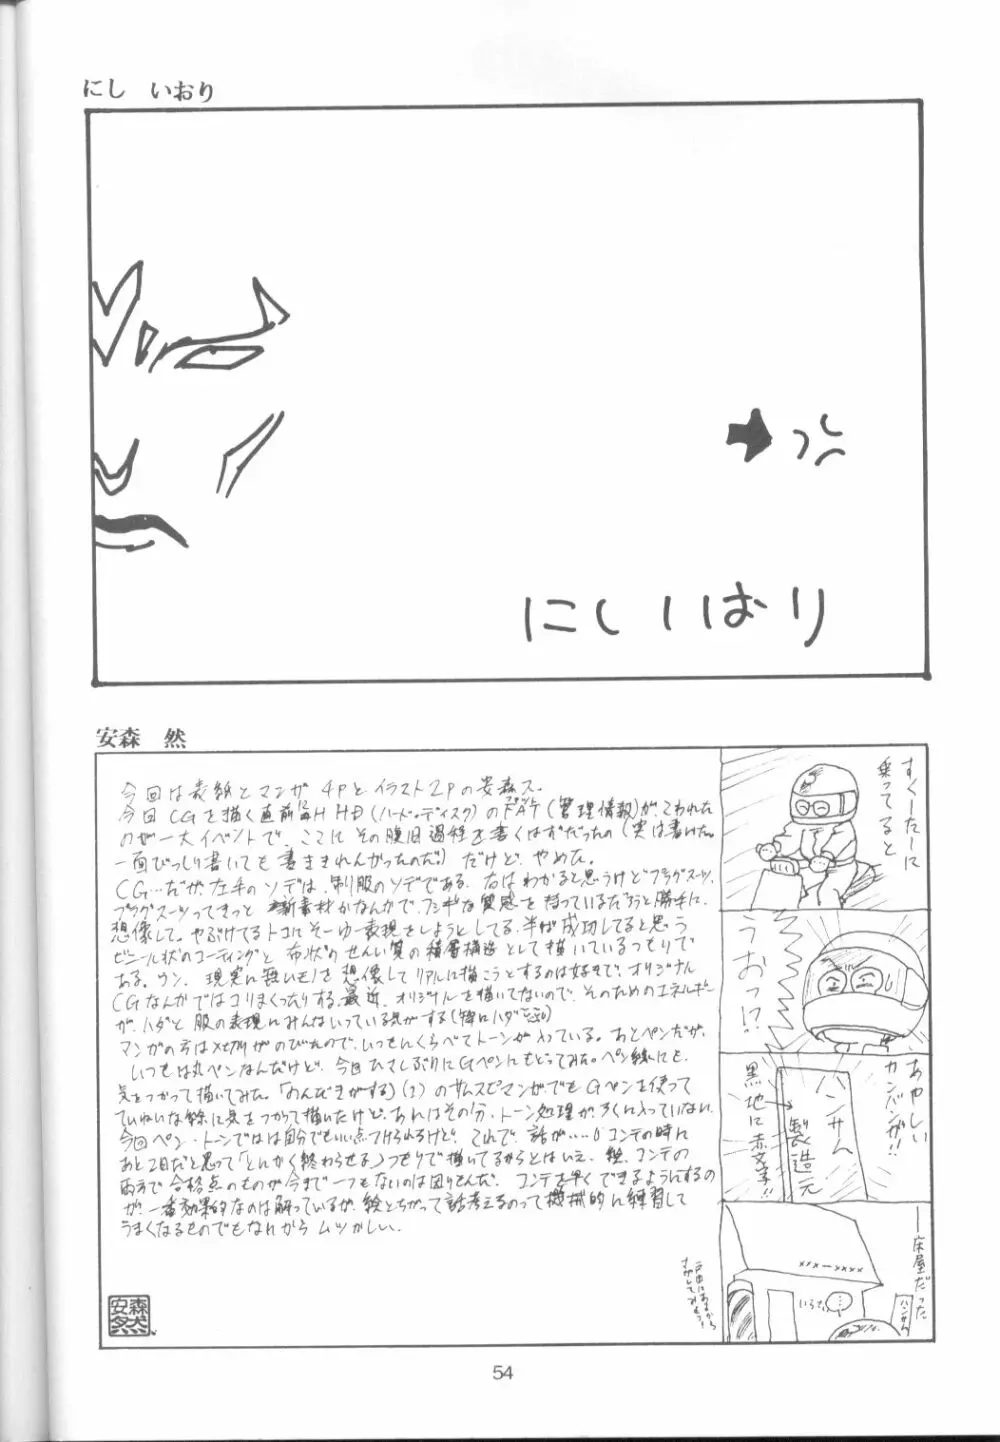 にし いおり
にしいおり
安森 然
今回は表紙とマンガ 4Pとイラスト2Pの安森ス。
今回CGを描く直前に HD(ハード・ディスク)のFAT(管理情報)がこわれた
のが一大イベントで、ここに その復旧過程を書くはずだったの(実は書いた。
一面びっしり書いても書ききれんかったのだ)だけど、やめた。
CG…だが、左手のソデは、制服のソデである。右はわかると思うけどプラグスーツ。
プラグスーツってきっと 新素材かなんかで、フシギな質感を持っているだろうと勝手に
想像して。やぶけてるトコにそーゆー表現をしようとしてる。半ば成功してると思う
ビニール状のコーティングと 布状のせんい質の積層構造として描いているつもりで
ある。ウン、現実に無いモノを想像してリアルに描こうとするのは好きで、オリジナル
CGなんかではコリまくったりする。最近、オリジナルを描いてないので、そのためのエネルギー
が、ハダと服の表現にみんないっている気がする(特にハダ
マンガの方は〆切がのびたので、いつもにくらべてトーンが入っている。あとペンだが、
いつもは丸ペンなんだけど、今回ひさしぶりにGペンにもどってみた。ペン線にも、
気をつかって描いてみた。「のんびきがする」(2)のサムスピマンガでもGペンを使って
ていねいな線に気をつかって描いたけど、あれはその分、トーン処理がろくに入っていない。
今回ペン・トーンでは自分でもいい点つけられるけど、これで、話が……。コンテの時に
あと2日だと思って「とにかく終わらせる」つもりで描いてるからとはいえ、絵、コンテの
両方で合格点のものが今まで一つもないのは困りもんだ。コンテを早くできるようにするの
が、一番効果的なのは解っているが、絵とちがって話考えるのって機械的に練習して
うまくなるものでもなれから ムツかしい。
安森然
すくーたーに
乗ってると
うおっ!?
あやしい
カンバンが!!
ハンサム
製造元
黒地に赤文字!!
―床屋だった
ハンサム
54